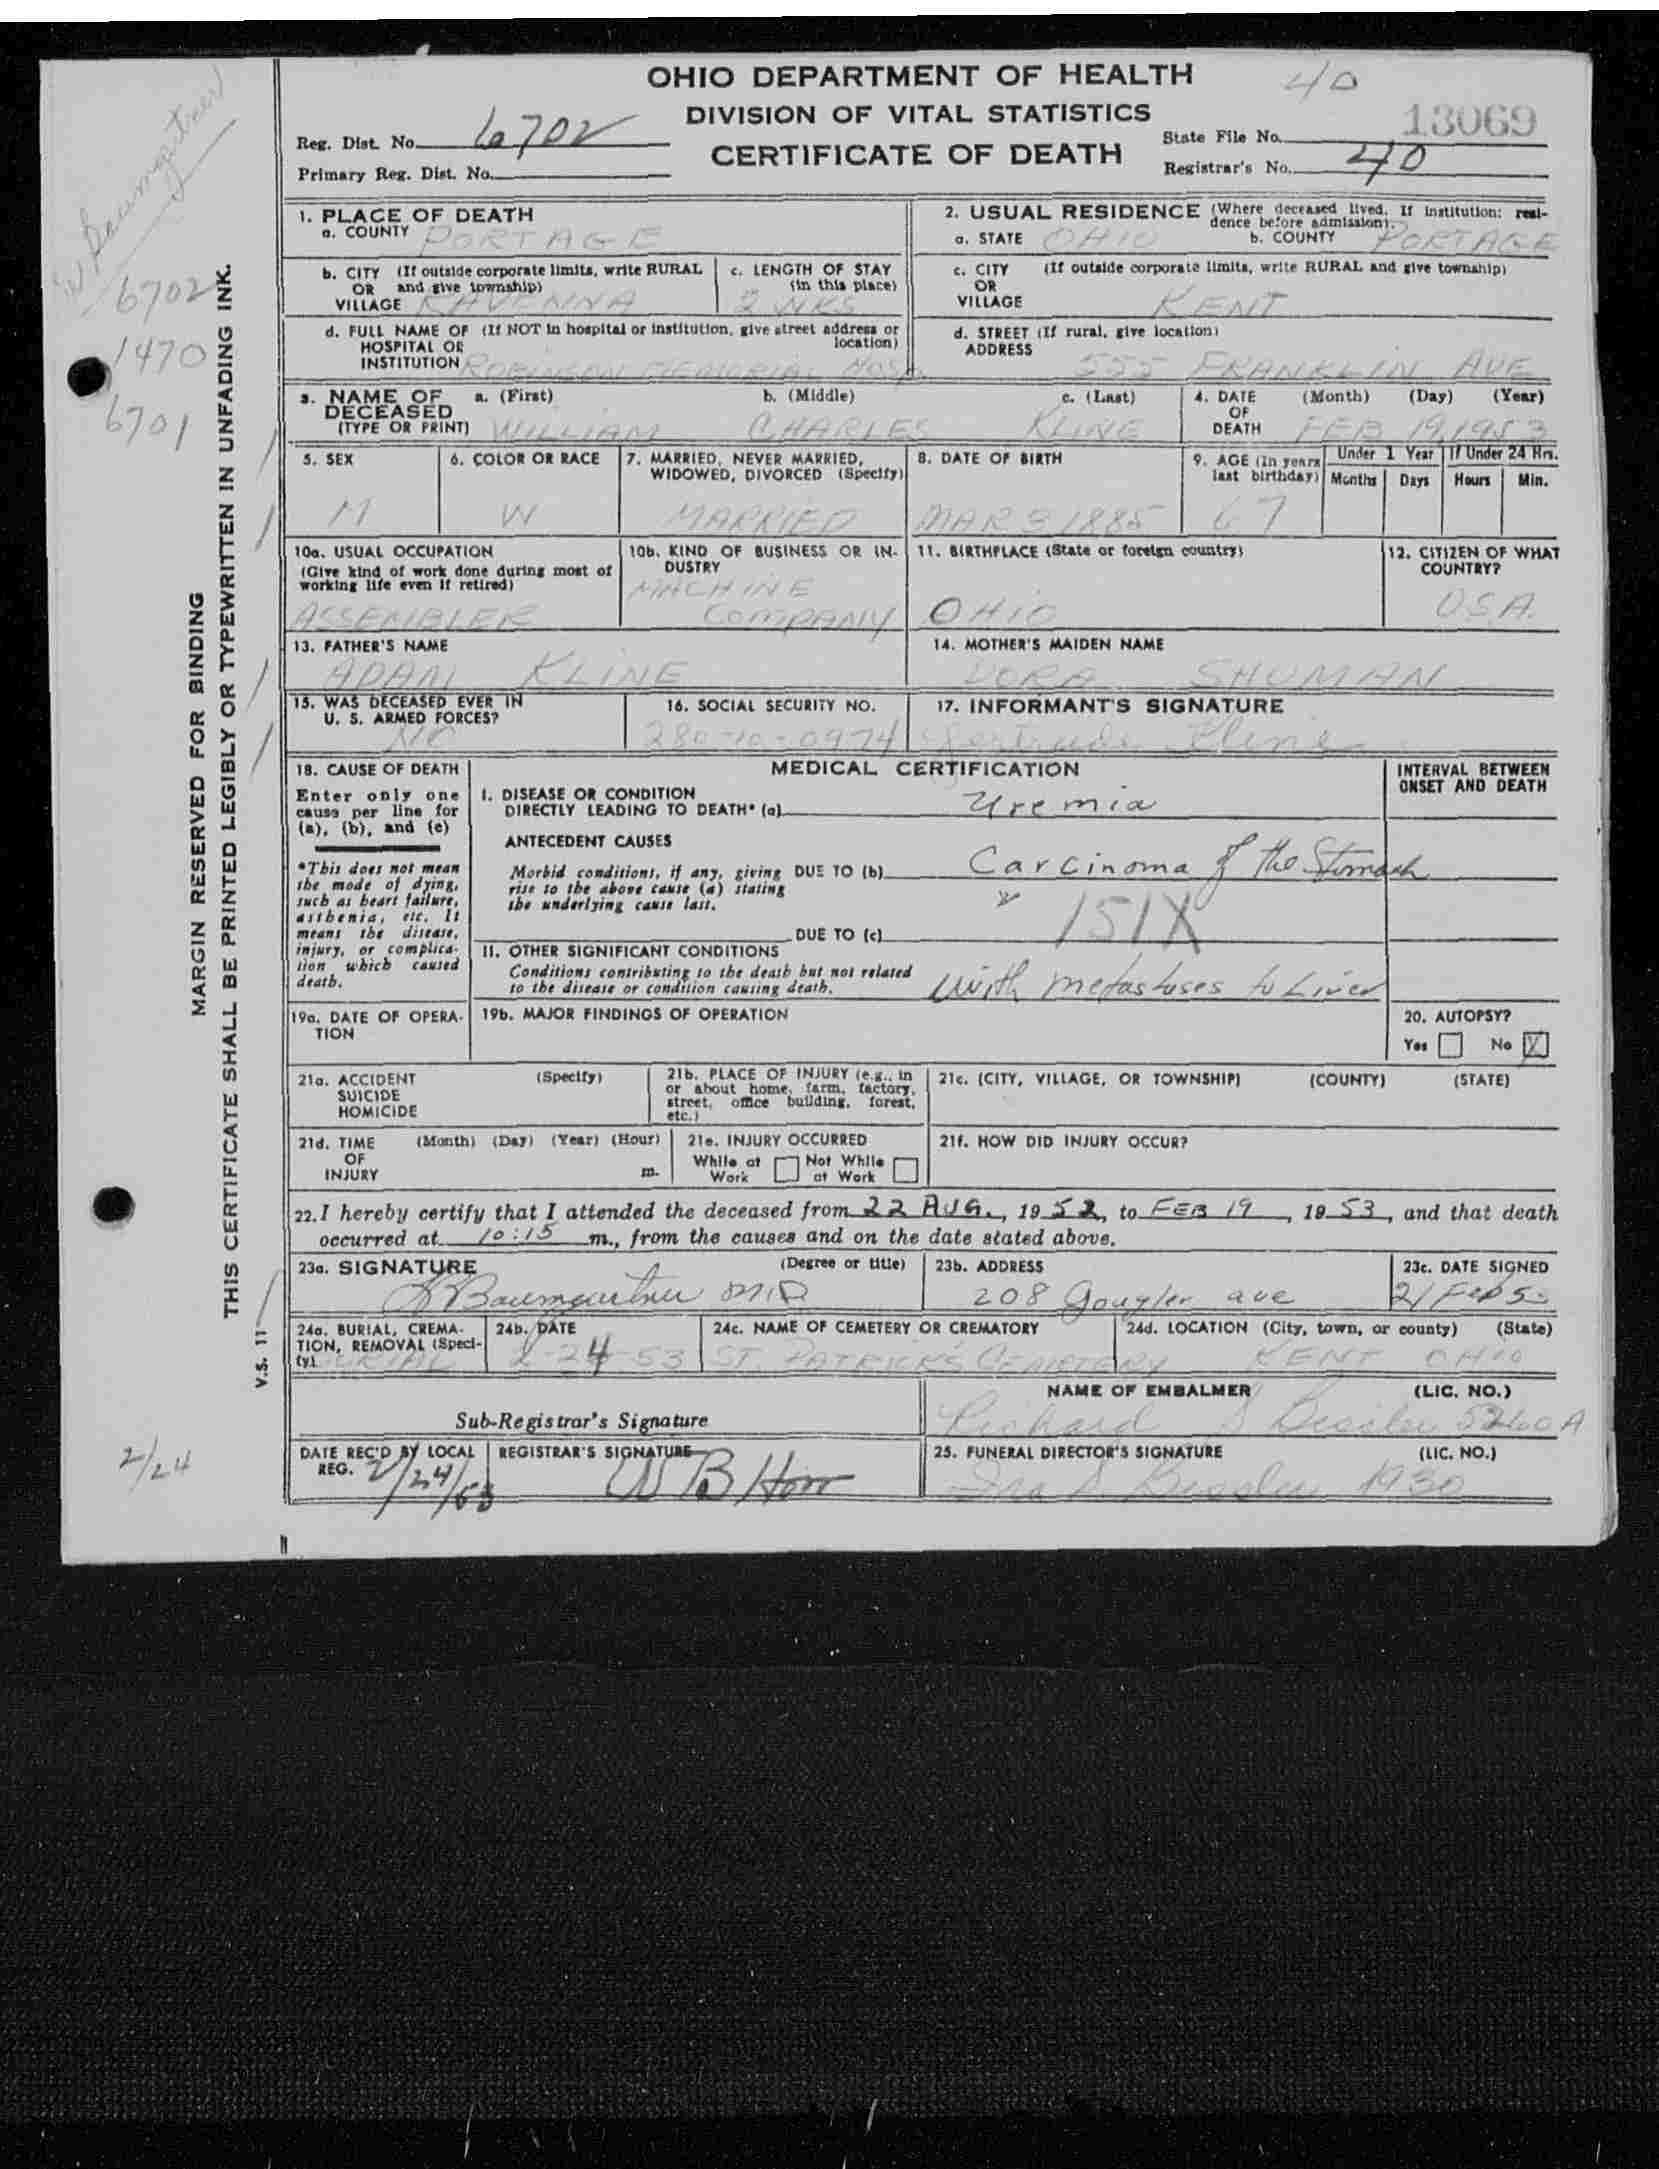 OHIO DEPARTMENT OF HEALTH
DIVISION OF VITAL STATISTICS
CERTIFICATE OF DEATH
40
Reg. Dist. No. 6702
Primary Reg. Dist. No.
State File No. 13069
Registrar's No. 40
W Baumgartner
6702
1470
6701
MARGIN RESERVED FOR BINDING
THIS CERTIFICATE SHALL BE PRINTED LEGIBLY OR TYPEWRITTEN IN UNFADING INK.
V.S. 11
2/24
1. PLACE OF DEATH
a. COUNTY PORTAGE
b. CITY (If outside corporate limits, write RURAL
OR and give township)
VILLAGE RAVENNA
c. LENGTH OF STAY
(in this place)
2 WKS
d. FULL NAME OF (If NOT in hospital or institution, give street address or
HOSPITAL OR location)
INSTITUTION ROBINSON MEMORIAL HOSP.
2. USUAL RESIDENCE (Where deceased lived. If institution: resi-
dence before admission).
a. STATE OHIO b. COUNTY PORTAGE
c. CITY (If outside corporate limits, write RURAL and give township)
OR
VILLAGE KENT
d. STREET (If rural, give location)
ADDRESS 555 FRANKLIN AVE
3. NAME OF a. (First) b. (Middle) c. (Last)
DECEASED
(TYPE OR PRINT) WILLIAM CHARLES KLINE
4. DATE (Month) (Day) (Year)
OF
DEATH FEB 19, 1953
5. SEX
M
6. COLOR OR RACE
W
7. MARRIED, NEVER MARRIED,
WIDOWED, DIVORCED (Specify)
MARRIED
8. DATE OF BIRTH
MAR 3 1885
9. AGE (In years
last birthday)
67
Under 1 Year
Months Days
If Under 24 Hrs.
Hours Min.
10a. USUAL OCCUPATION
(Give kind of work done during most of
working life even if retired)
ASSEMBLER
10b. KIND OF BUSINESS OR IN-
DUSTRY
MACHINE
COMPANY
11. BIRTHPLACE (State or foreign country)
OHIO
12. CITIZEN OF WHAT
COUNTRY?
U.S.A.
13. FATHER'S NAME
ADAM KLINE
14. MOTHER'S MAIDEN NAME
DORA SHUMAN
15. WAS DECEASED EVER IN
U. S. ARMED FORCES?
NO
16. SOCIAL SECURITY NO.
280-10-0974
17. INFORMANT'S SIGNATURE
Gertrude Kline
18. CAUSE OF DEATH
Enter only one
cause per line for
(a), (b), and (c)
*This does not mean
the mode of dying,
such as heart failure,
asthenia, etc. It
means the disease,
injury, or complica-
tion which caused
death.
MEDICAL CERTIFICATION
I. DISEASE OR CONDITION
DIRECTLY LEADING TO DEATH* (a) Uremia
ANTECEDENT CAUSES
Morbid conditions, if any, giving DUE TO (b) Carcinoma of the Stomach
rise to the above cause (a) stating
the underlying cause last.
151X
DUE TO (c)
II. OTHER SIGNIFICANT CONDITIONS
Conditions contributing to the death but not related
to the disease or condition causing death.
with metastases to Liver
INTERVAL BETWEEN
ONSET AND DEATH
19a. DATE OF OPERA-
TION
19b. MAJOR FINDINGS OF OPERATION
20. AUTOPSY?
Yes No X
21a. ACCIDENT (Specify)
SUICIDE
HOMICIDE
21b. PLACE OF INJURY (e.g., in
or about home, farm, factory,
street, office building, forest,
etc.)
21c. (CITY, VILLAGE, OR TOWNSHIP) (COUNTY) (STATE)
21d. TIME (Month) (Day) (Year) (Hour)
OF
INJURY m.
21e. INJURY OCCURRED
While at Not While
Work at Work
21f. HOW DID INJURY OCCUR?
22. I hereby certify that I attended the deceased from 22 AUG., 1952, to FEB 19, 1953, and that death
occurred at 10:15 m., from the causes and on the date stated above.
23a. SIGNATURE (Degree or title)
Baumgartner M.D
23b. ADDRESS
208 Gougler ave
23c. DATE SIGNED
21 Feb 53
24a. BURIAL, CREMA-
TION, REMOVAL (Speci-
fy) BURIAL
24b. DATE
2-24-53
24c. NAME OF CEMETERY OR CREMATORY
ST. PATRICK'S CEMETERY
24d. LOCATION (City, town, or county) (State)
KENT OHIO
Sub-Registrar's Signature
NAME OF EMBALMER (LIC. NO.)
Richard S Bissler 5260A
DATE REC'D BY LOCAL
REG. 2/24/53
REGISTRAR'S SIGNATURE
W B Horr
25. FUNERAL DIRECTOR'S SIGNATURE (LIC. NO.)
Bissler 1930